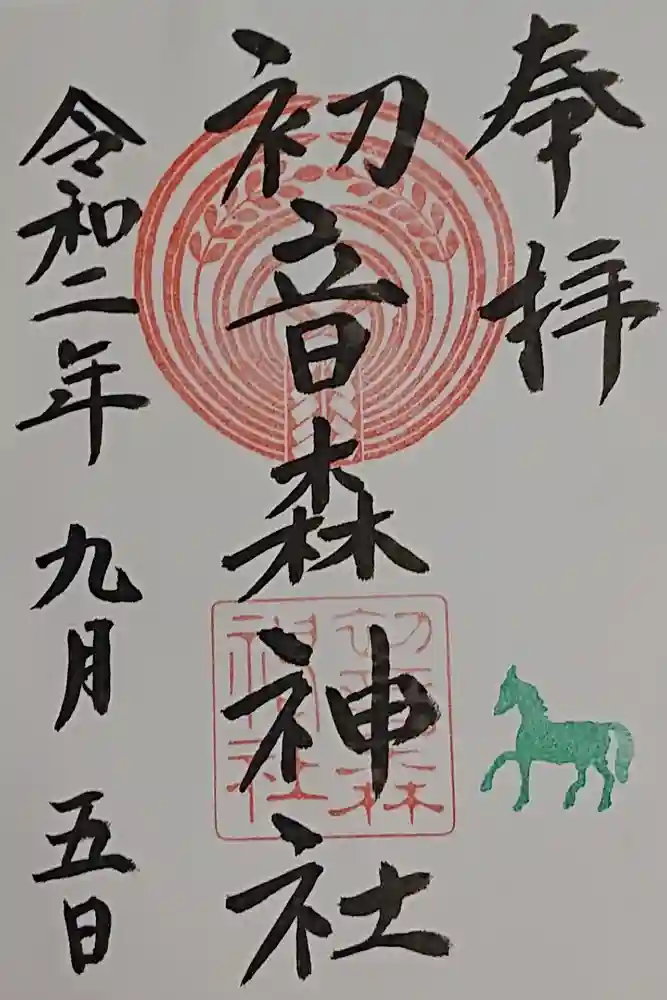 奉拝
初音森神社
初音森神社
令和二年九月五日